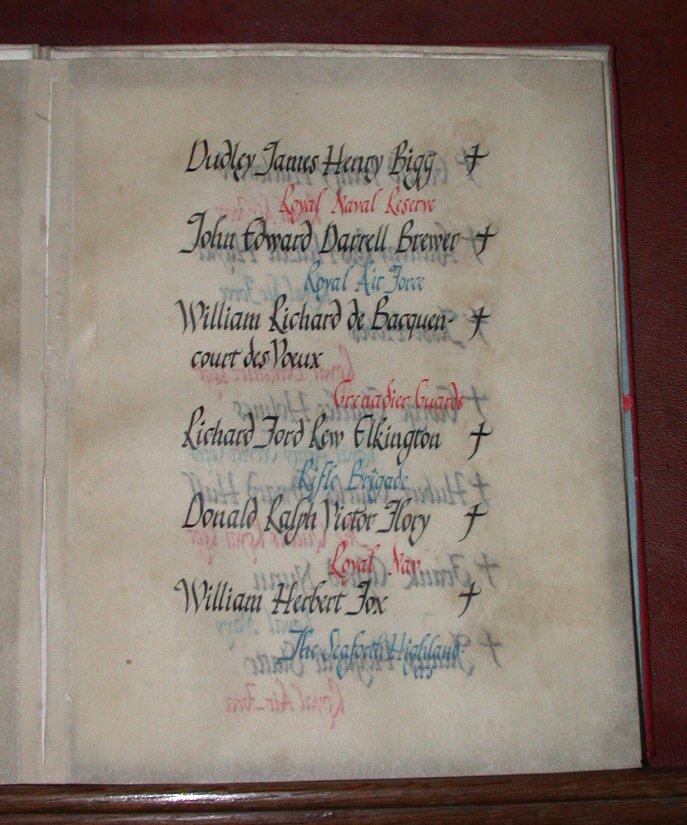 Dudley James Henry Bigg ✝
Royal Naval Reserve
John Edward Darrell Brewer ✝
Royal Air Force
William Richard de Bacquen- ✝
court des Voeux
Grenadier Guards
Richard Ford Rew Elkington ✝
Rifle Brigade
Donald Ralph Victor Flory ✝
Royal Navy
William Herbert Fox ✝
The Seaforth Highland-
ers